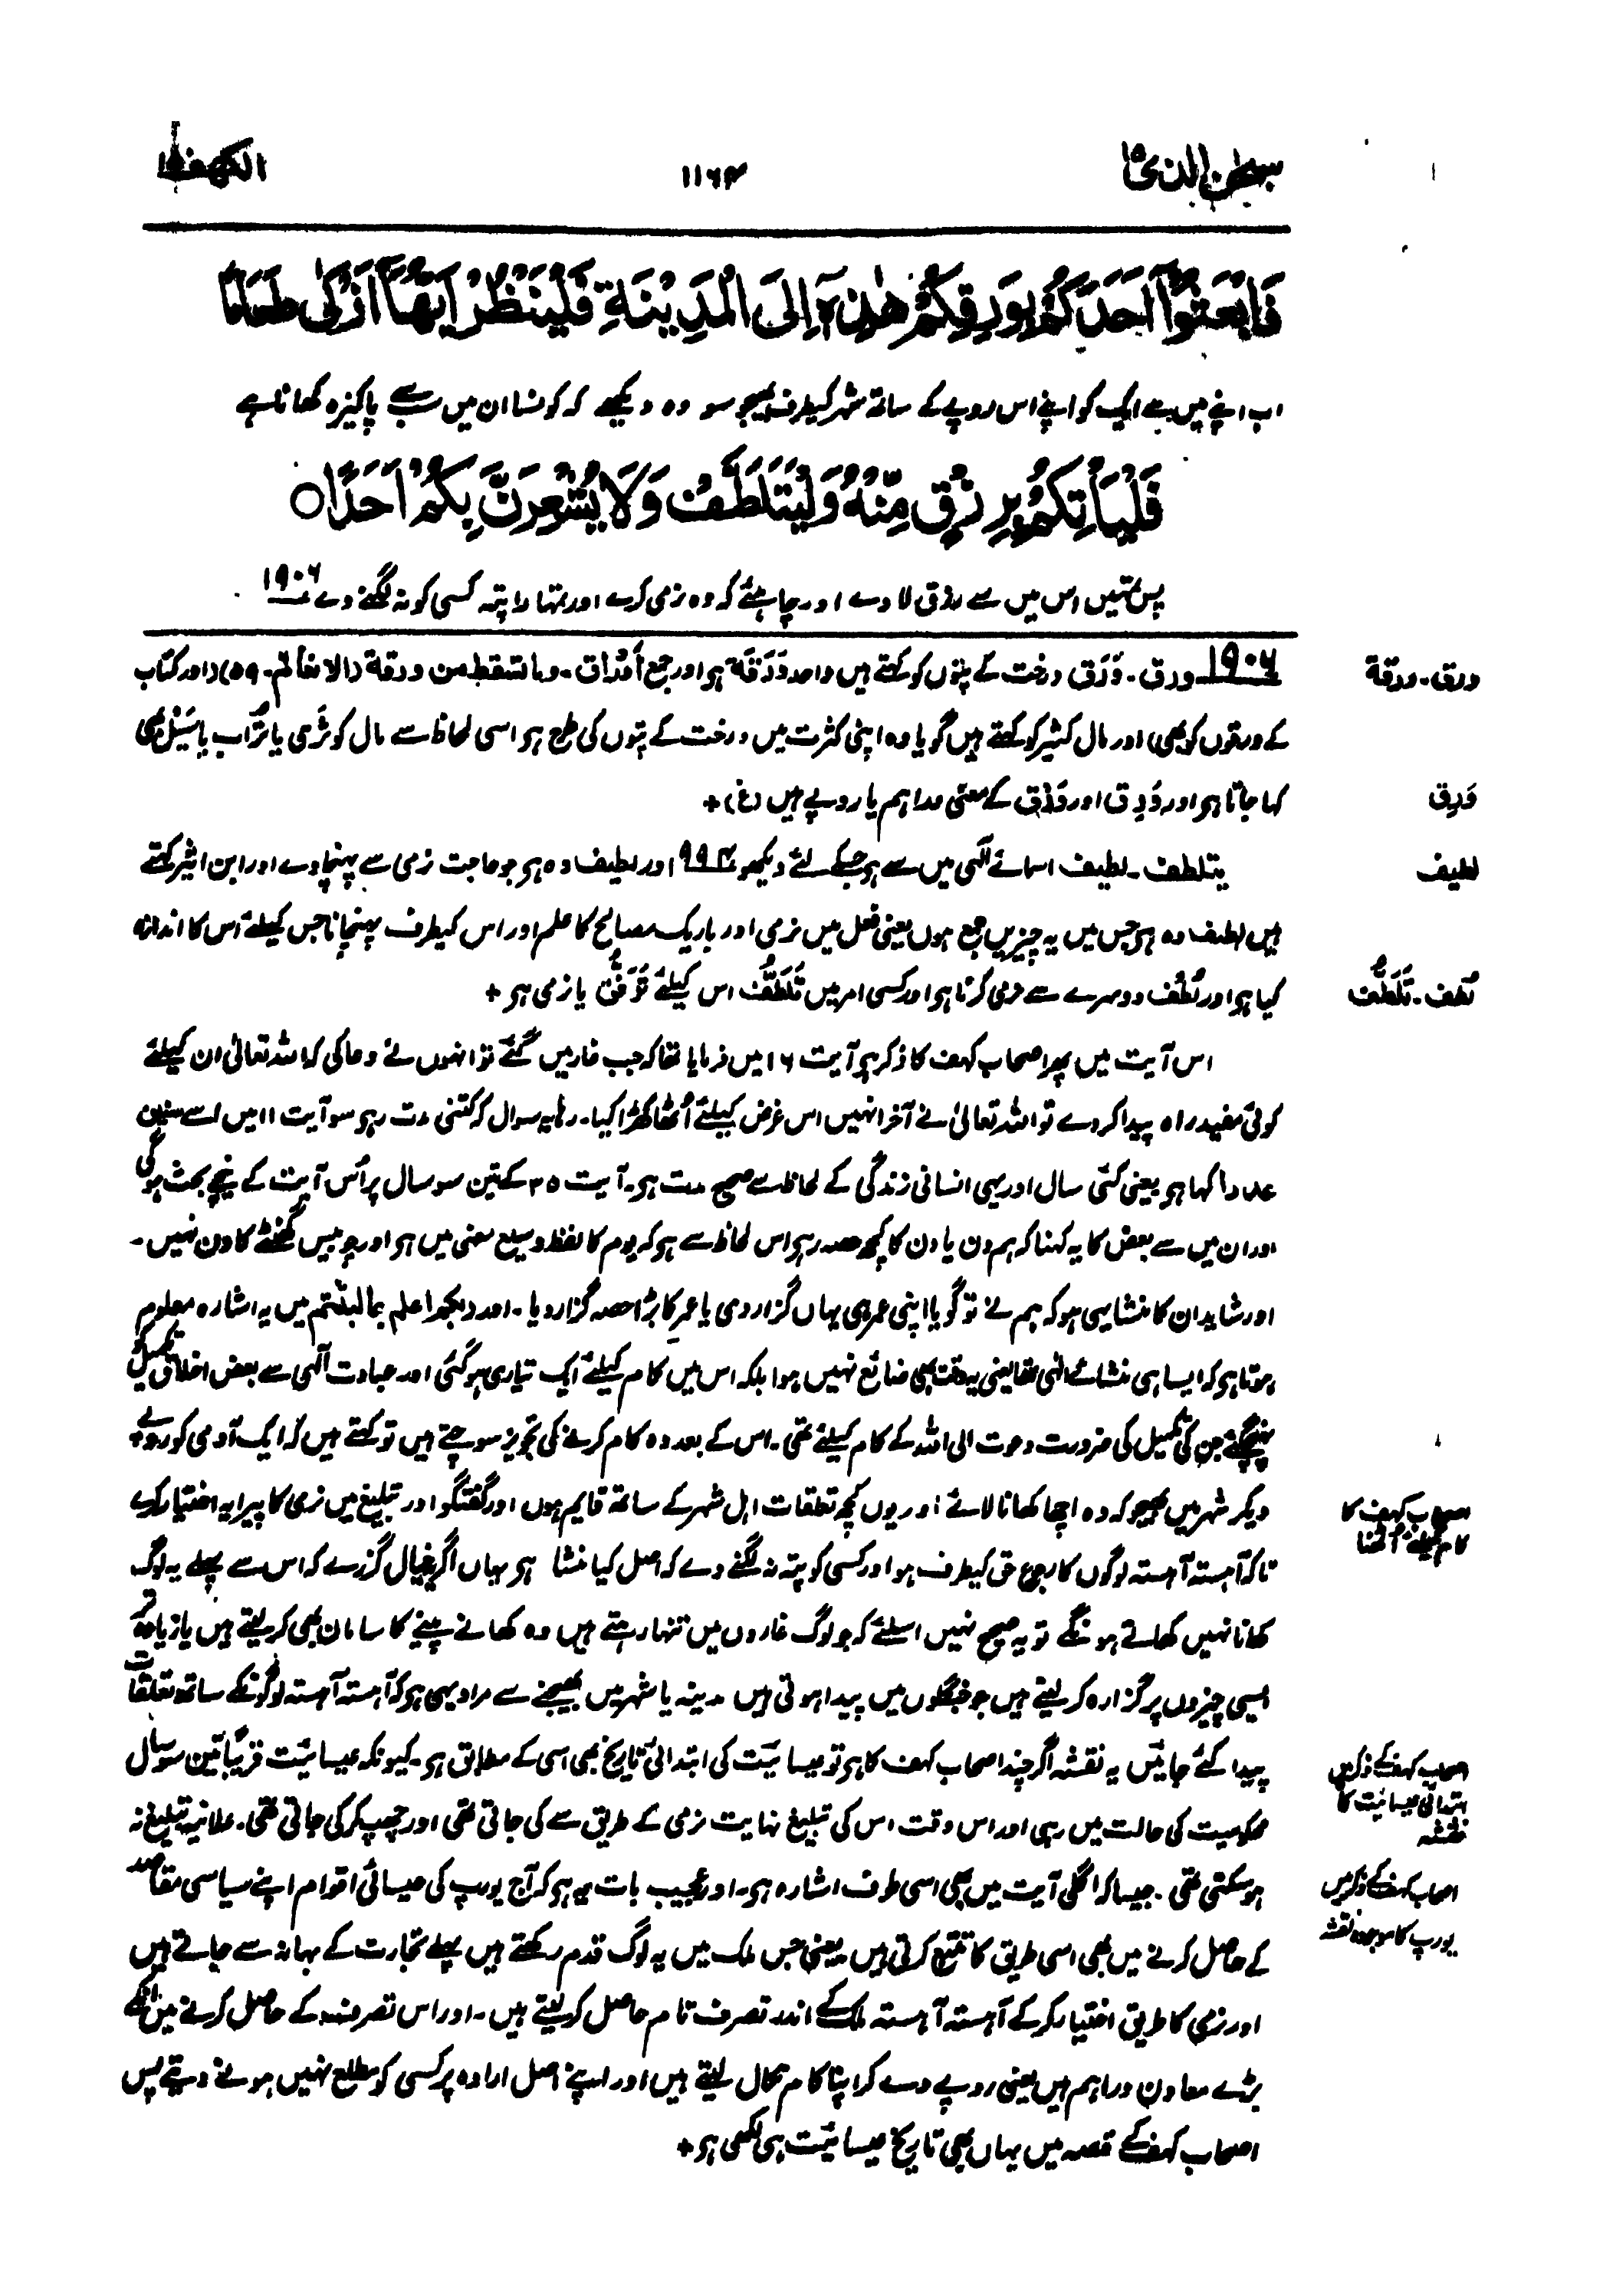 سبحٰن الذی ١٥
١١٦٤
الکھف ١٨
فَابْعَثُوْٓا اَحَدَكُمْ بِوَرِقِكُمْ هٰذِهٖٓ اِلَى الْمَدِيْنَةِ فَلْيَنْظُرْ اَيُّهَآ اَزْكٰى طَعَامًا
اب اپنے میں سے ایک کو اپنے اس روپے کے ساتھ شہر کیطرف بھیجو سو وہ دیکھے کہ کونسا ان میں سب سے پاکیزہ کھانا ہے
فَلْيَاْتِكُمْ بِرِزْقٍ مِّنْهُ وَلْيَتَلَطَّفْ وَلَا يُشْعِرَنَّ بِكُمْ اَحَدًا ○
پس تمہیں اس میں سے رزق لا دے اور چاہئے کہ وہ نرمی کرے اور تمہارا پتہ کسی کو نہ لگنے دے ١٩٠٦
١٩٠٦ ورق۔ وَرَق درخت کے پتوں کو کہتے ہیں واحد وَرَقَة ہو اور جمع اَوْراق۔ وما تسقط من ورقة (الانعام۔ ٥٩) (اور کتاب
ورق۔ ورقة
کے ورقوں کو بھی) اور مال کثیر کو کہتے ہیں گویا وہ اپنی کثرت میں درخت کے پتوں کی طرح ہو اسی لحاظ سے مال کو ثَرٰی یا تُراب یا سَیْل بھی
کہا جاتا ہو اور وَرِق اور وَرْق کے معنی دراہم یا روپے ہیں (غ) +
وَرِق
یتلطف۔ لطیف اسمائے الٰہی میں سے ہو جسکے لئے دیکھو ٩٩٤ اور لطیف وہ ہو جو حاجت نرمی سے پہنچا دے اور ابن اثیر کہتے
لطیف
ہیں لطیف وہ ہو جس میں یہ چیزیں جمع ہوں یعنی فعل میں نرمی اور باریک مصالح کا علم اور اس کیطرف پہنچانا جس کیلئے اس کا اندازہ
کیا ہو اور لُطْف دوسرے سے نرمی کرنا ہو اور کسی امر میں تَلَطُّف اس کیلئے تَرَفُّق یا نرمی ہو +
لُطْف۔ تَلَطُّف
اس آیت میں پھر اصحاب کہف کا ذکر ہو آیت ١٦ میں فرمایا تھا کہ جب غار میں گئے تو انہوں نے دعا کی کہ اللہ تعالیٰ ان کیلئے
کوئی مفید راہ پیدا کر دے تو اللہ تعالیٰ نے آخر انہیں اس غرض کیلئے اُٹھا کھڑا کیا۔ رہا یہ سوال کہ کتنی مدت رہو سو آیت ١١ میں اسے سنین
عددا کہا ہو یعنی کئی سال اور یہی انسانی زندگی کے لحاظ سے صحیح مدت ہو۔ آیت ٢٥ کے تین سو سال پر اُس آیت کے نیچے بحث ہوگی
اور ان میں سے بعض کا یہ کہنا کہ ہم دن یا دن کا کچھ حصہ رہو اس لحاظ سے ہو کہ یوم کا لفظ وسیع معنی میں ہو اور چوبیس گھنٹے کا دن نہیں۔
اور شاید ان کا منشا یہی ہو کہ ہم نے تو گویا اپنی عمر ہی یہاں گزار دی یا عمر کا بڑا حصہ گزار دیا۔ اور ربکم اعلم بما لبثتم میں یہ اشارہ معلوم
ہوتا ہو کہ ایسا ہی منشائے الٰہی تھا یعنی یہ وقت بھی ضائع نہیں ہوا بلکہ اس میں کام کیلئے ایک تیاری ہو گئی اور عبادت الٰہی سے بعض اخلاق تکمیل کو
پہنچ گئے جن کی تکمیل کی ضرورت دعوت الی اللہ کے کام کیلئے تھی۔ اس کے بعد وہ کام کرنے کی تجویز سوچتے ہیں تو کہتے ہیں کہ ایک آدمی کو روپے
دیکر شہر میں بھیجو کہ وہ اچھا کھانا لائے اور یوں کچھ تعلقات اہل شہر کے ساتھ قایم ہوں اور گفتگو اور تبلیغ میں نرمی کا پیرایہ اختیار کرے
اصحاب کہف کا
کام کیلئے اُٹھنا
تا کہ آہستہ آہستہ لوگوں کا رجوع حق کیطرف ہو اور کسی کو پتہ نہ لگنے دے کہ اصل کیا منشا ہو یہاں اگر یہ خیال گزرے کہ اس سے پہلے یہ لوگ
کھانا نہیں کھاتے ہونگے تو یہ صحیح نہیں اسلئے کہ جو لوگ غاروں میں تنہا رہتے ہیں وہ کھانے پینے کا سامان بھی کر لیتے ہیں یا زیادہ تر
ایسی چیزوں پر گزارہ کر لیتے ہیں جو جنگلوں میں پیدا ہوتی ہیں مدینہ یا شہر میں بھیجنے سے مراد یہی ہو کہ آہستہ آہستہ لوگونکے ساتھ تعلقات
پیدا کئے جائیں یہ نقشہ اگر چند اصحاب کہف کا ہو تو عیسائیت کی ابتدائی تاریخ بھی اسی کے مطابق ہو۔ کیونکہ عیسائیت قریباً تین سو سال
اصحاب کہف کے ذکر میں
ابتدائی عیسائیت کا
نقشہ
محکومیت کی حالت میں رہی اور اس وقت اس کی تبلیغ نہایت نرمی کے طریق سے کی جاتی تھی اور چھپ کر کی جاتی تھی۔ علانیہ تبلیغ نہ
ہو سکتی تھی۔ جیسا کہ اگلی آیت میں بھی اسی طرف اشارہ ہو۔ اور عجیب بات یہ ہو کہ آج یورپ کی عیسائی اقوام اپنے سیاسی مقاصد
اصحاب کہف کے ذکر میں
یورپ کا موجودہ نقشہ
کے حاصل کرنے میں بھی اسی طریق کا تتبع کرتی ہیں یعنی جس ملک میں یہ لوگ قدم رکھتے ہیں پہلے تجارت کے بہانہ سے جاتے ہیں
اور نرمی کا طریق اختیار کر کے آہستہ آہستہ ملک کے اندر تصرف تام حاصل کر لیتے ہیں۔ اور اس تصرف کے حاصل کرنے میں انکے
بڑے معاون دراہم ہیں یعنی روپے دے کر اپنا کام نکال لیتے ہیں اور اپنے اصل ارادہ پر کسی کو مطلع نہیں ہونے دیتے پس
اصحاب کہف کے قصہ میں یہاں بھی تاریخ عیسائیت ہی لکھی ہو +